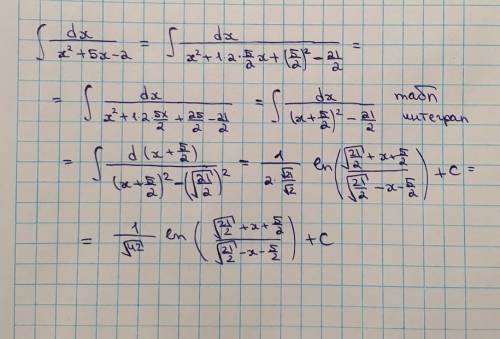 ∫ dx / (x² + 5x - 2) = ∫ dx / (x² + 1·2·5/2 x + (5/2)² - 21/2) =
= ∫ dx / (x² + 1·2·5x/2 + 25/2 - 21/2) = ∫ dx / ((x + 5/2)² - 21/2) табл интеграл
= ∫ d(x + 5/2) / ((x + 5/2)² - (√(21/2))²) = 1 / (2·√21/√2) ln((√(21/2) + x + 5/2) / (√(21/2) - x - 5/2)) + C =
= 1/√42 ln((√(21/2) + x + 5/2) / (√(21/2) - x - 5/2)) + C